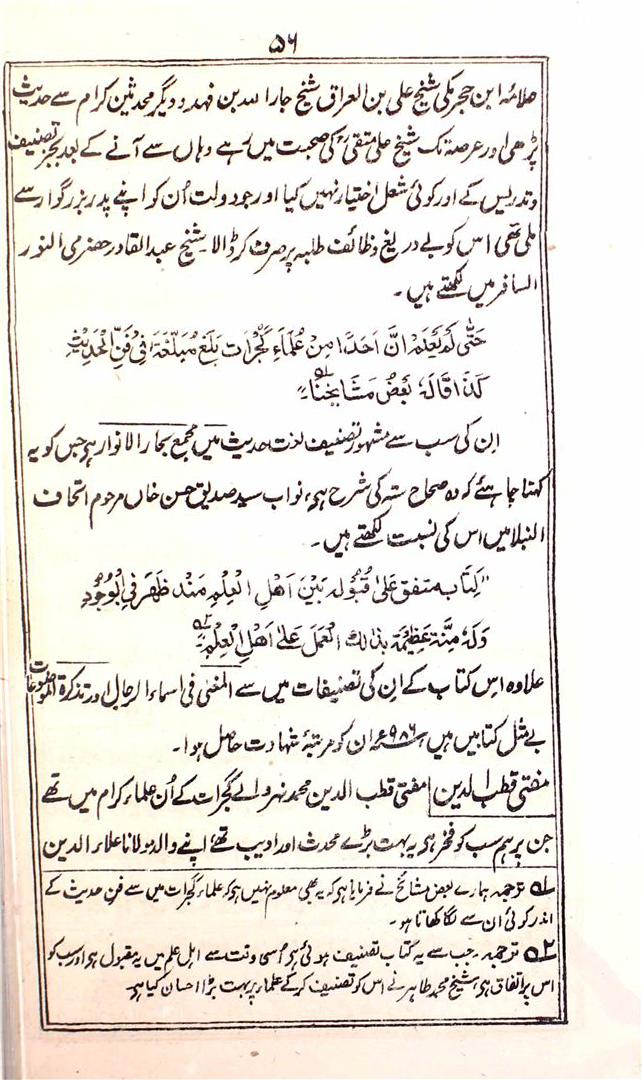 ۵۶
علامہ ابن حجر مکی شیخ علی بن العراق شیخ جار اللہ بن فہد و دیگر محدثین کرام سے حدیث
پڑھی اور عرصہ تک شیخ علی متقیؒ کی صحبت میں رہے وہاں سے آنے کے بعد بجز تصنیف
و تدریس کے اور کوئی شغل اختیار نہیں کیا اور جو دولت اُن کو اپنے پدر بزرگوار سے
ملی تھی اس کو بے دریغ وظائف طلبہ پر صرف کر ڈالا۔ شیخ عبد القادر حضرمی النور
السافر میں لکھتے ہیں۔
حَتّٰی لَمْ یُعْلَمْ اَنَّ اَحَدًا مِنْ عُلَمَاءِ گُجْرَات بَلَغَ مَبْلَغَہٗ فِیْ فَنِّ الْحَدِیْثِ
کَذَا قَالَہٗ بَعْضُ مَشَایِخِنَا۔ ۱؎
ان کی سب سے مشہور تصنیف لغت حدیث میں مجمع بحار الانوار ہے جس کو یہ
کہنا چاہئے کہ وہ صحاح ستہ کی شرح ہے، نواب سید صدیق حسن خاں مرحوم اتحاف
النبلا میں اس کی نسبت لکھتے ہیں۔
"کِتَابٌ متفق عَلٰی قُبُوْلِہٖ بَیْنَ اَھْلِ الْعِلْمِ مُنْذُ ظَھَرَ فِی الْوُجُوْدِ
وَلَہٗ مِنَّۃٌ عَظِیْمَۃٌ بِذٰلِکَ الْعَمَلِ عَلٰی اَھْلِ الْعِلْمِ۔ ۲؎
علاوہ اس کتاب کے ان کی تصنیفات میں سے المغنی فی اسماء الرجال اور تذکرۃ الموضوعات
بے مثل کتابیں ہیں، ۹۸۶ھ میں ان کو مرتبۂ شہادت حاصل ہوا۔
مفتی قطب الدین مفتی قطب الدین محمد نہروالے گجرات کے اُن علماء کرام میں تھے
جن پر ہم سب کو فخر ہے یہ بہت بڑے محدث اور ادیب تھے اپنے والد مولانا علاء الدین
۱؎ ترجمہ ہمارے بعض مشائخ نے فرمایا ہے کہ یہ بھی معلوم نہیں ہے کہ علماء گجرات میں سے فن حدیث کے
اندر کوئی ان سے لگا کھاتا ہو۔
۲؎ ترجمہ۔ جب سے یہ کتاب تصنیف ہوئی ہے اُسی وقت سے اہل علم میں یہ مقبول ہے اور سب کو
اس پر اتفاق ہے، شیخ محمد طاہر نے اس کو تصنیف کر کے علماء پر بہت بڑا احسان کیا ہے۔